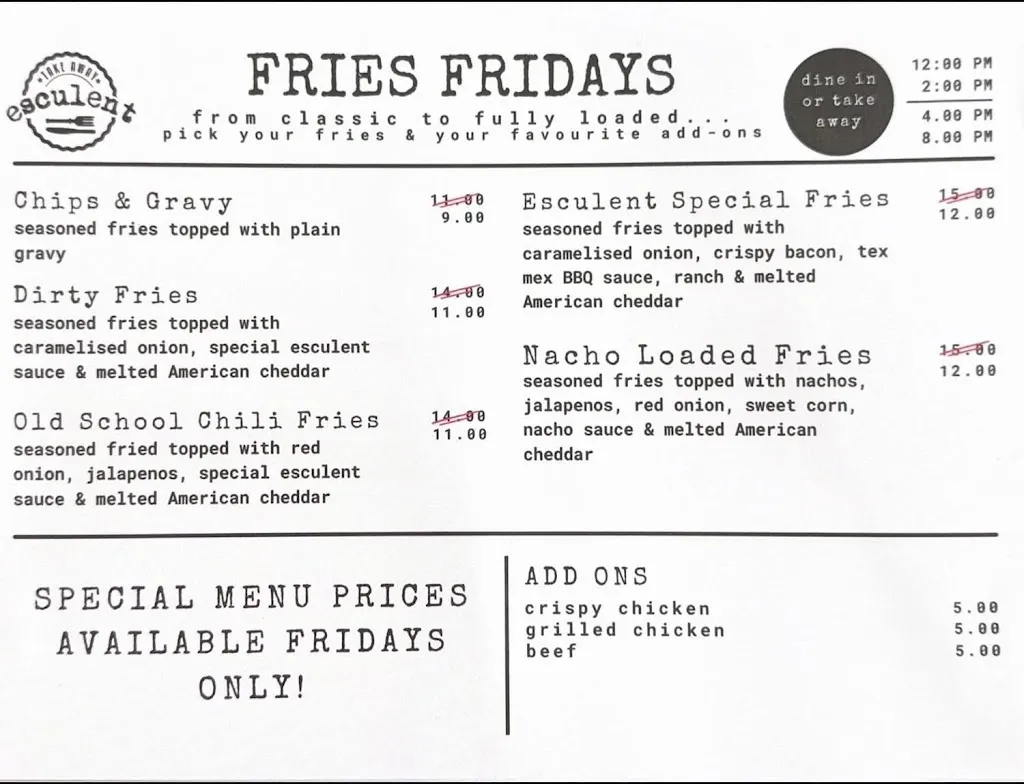 TAKE AWAY
esculent
FRIES FRIDAYS
from classic to fully loaded...
pick your fries & your favourite add-ons
dine in
or take
away
12:00 PM
2:00 PM
4.00 PM
8.00 PM
Chips & Gravy 11.00
9.00
seasoned fries topped with plain
gravy
Dirty Fries 14.00
11.00
seasoned fries topped with
caramelised onion, special esculent
sauce & melted American cheddar
Old School Chili Fries 14.00
11.00
seasoned fried topped with red
onion, jalapenos, special esculent
sauce & melted American cheddar
Esculent Special Fries 15.00
12.00
seasoned fries topped with
caramelised onion, crispy bacon, tex
mex BBQ sauce, ranch & melted
American cheddar
Nacho Loaded Fries 15.00
12.00
seasoned fries topped with nachos,
jalapenos, red onion, sweet corn,
nacho sauce & melted American
cheddar
SPECIAL MENU PRICES
AVAILABLE FRIDAYS
ONLY!
ADD ONS
crispy chicken 5.00
grilled chicken 5.00
beef 5.00